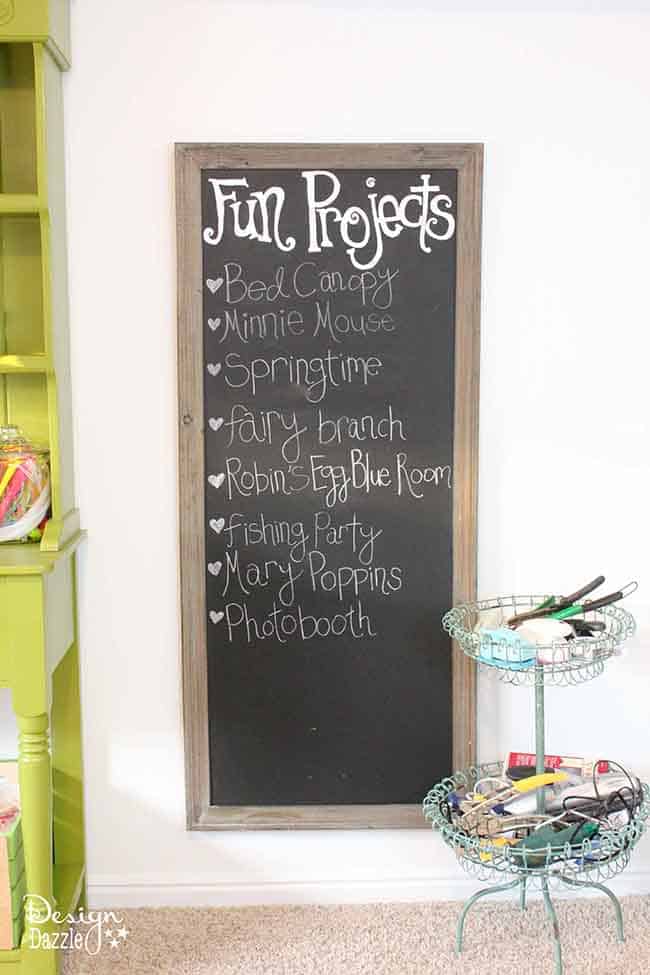 Fun Projects
Bed Canopy
Minnie Mouse
Springtime
fairy branch
Robin's Egg Blue Room
fishing Party
Mary Poppins
Photobooth
Design
Dazzle